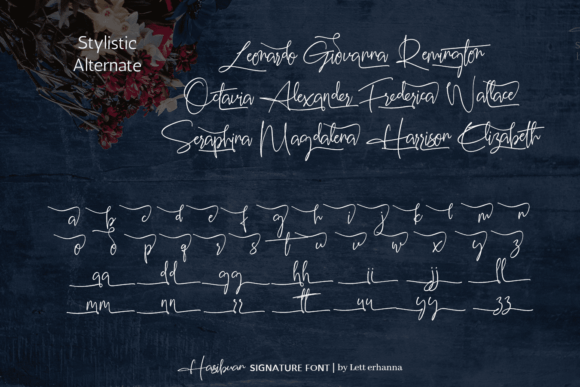 Stylistic
Alternate
Leonardo Giovanna Remington
Octavia Alexander Frederica Wallace
Seraphina Magdalena Harrison Elizabeth
a b c d e f g h i j k l m n
o o p q r s t u v w x y z
qq dd gg hh ii jj ll
mm nn rr tt uu yy zz
Hasibuan SIGNATURE FONT | by Lett erhanna